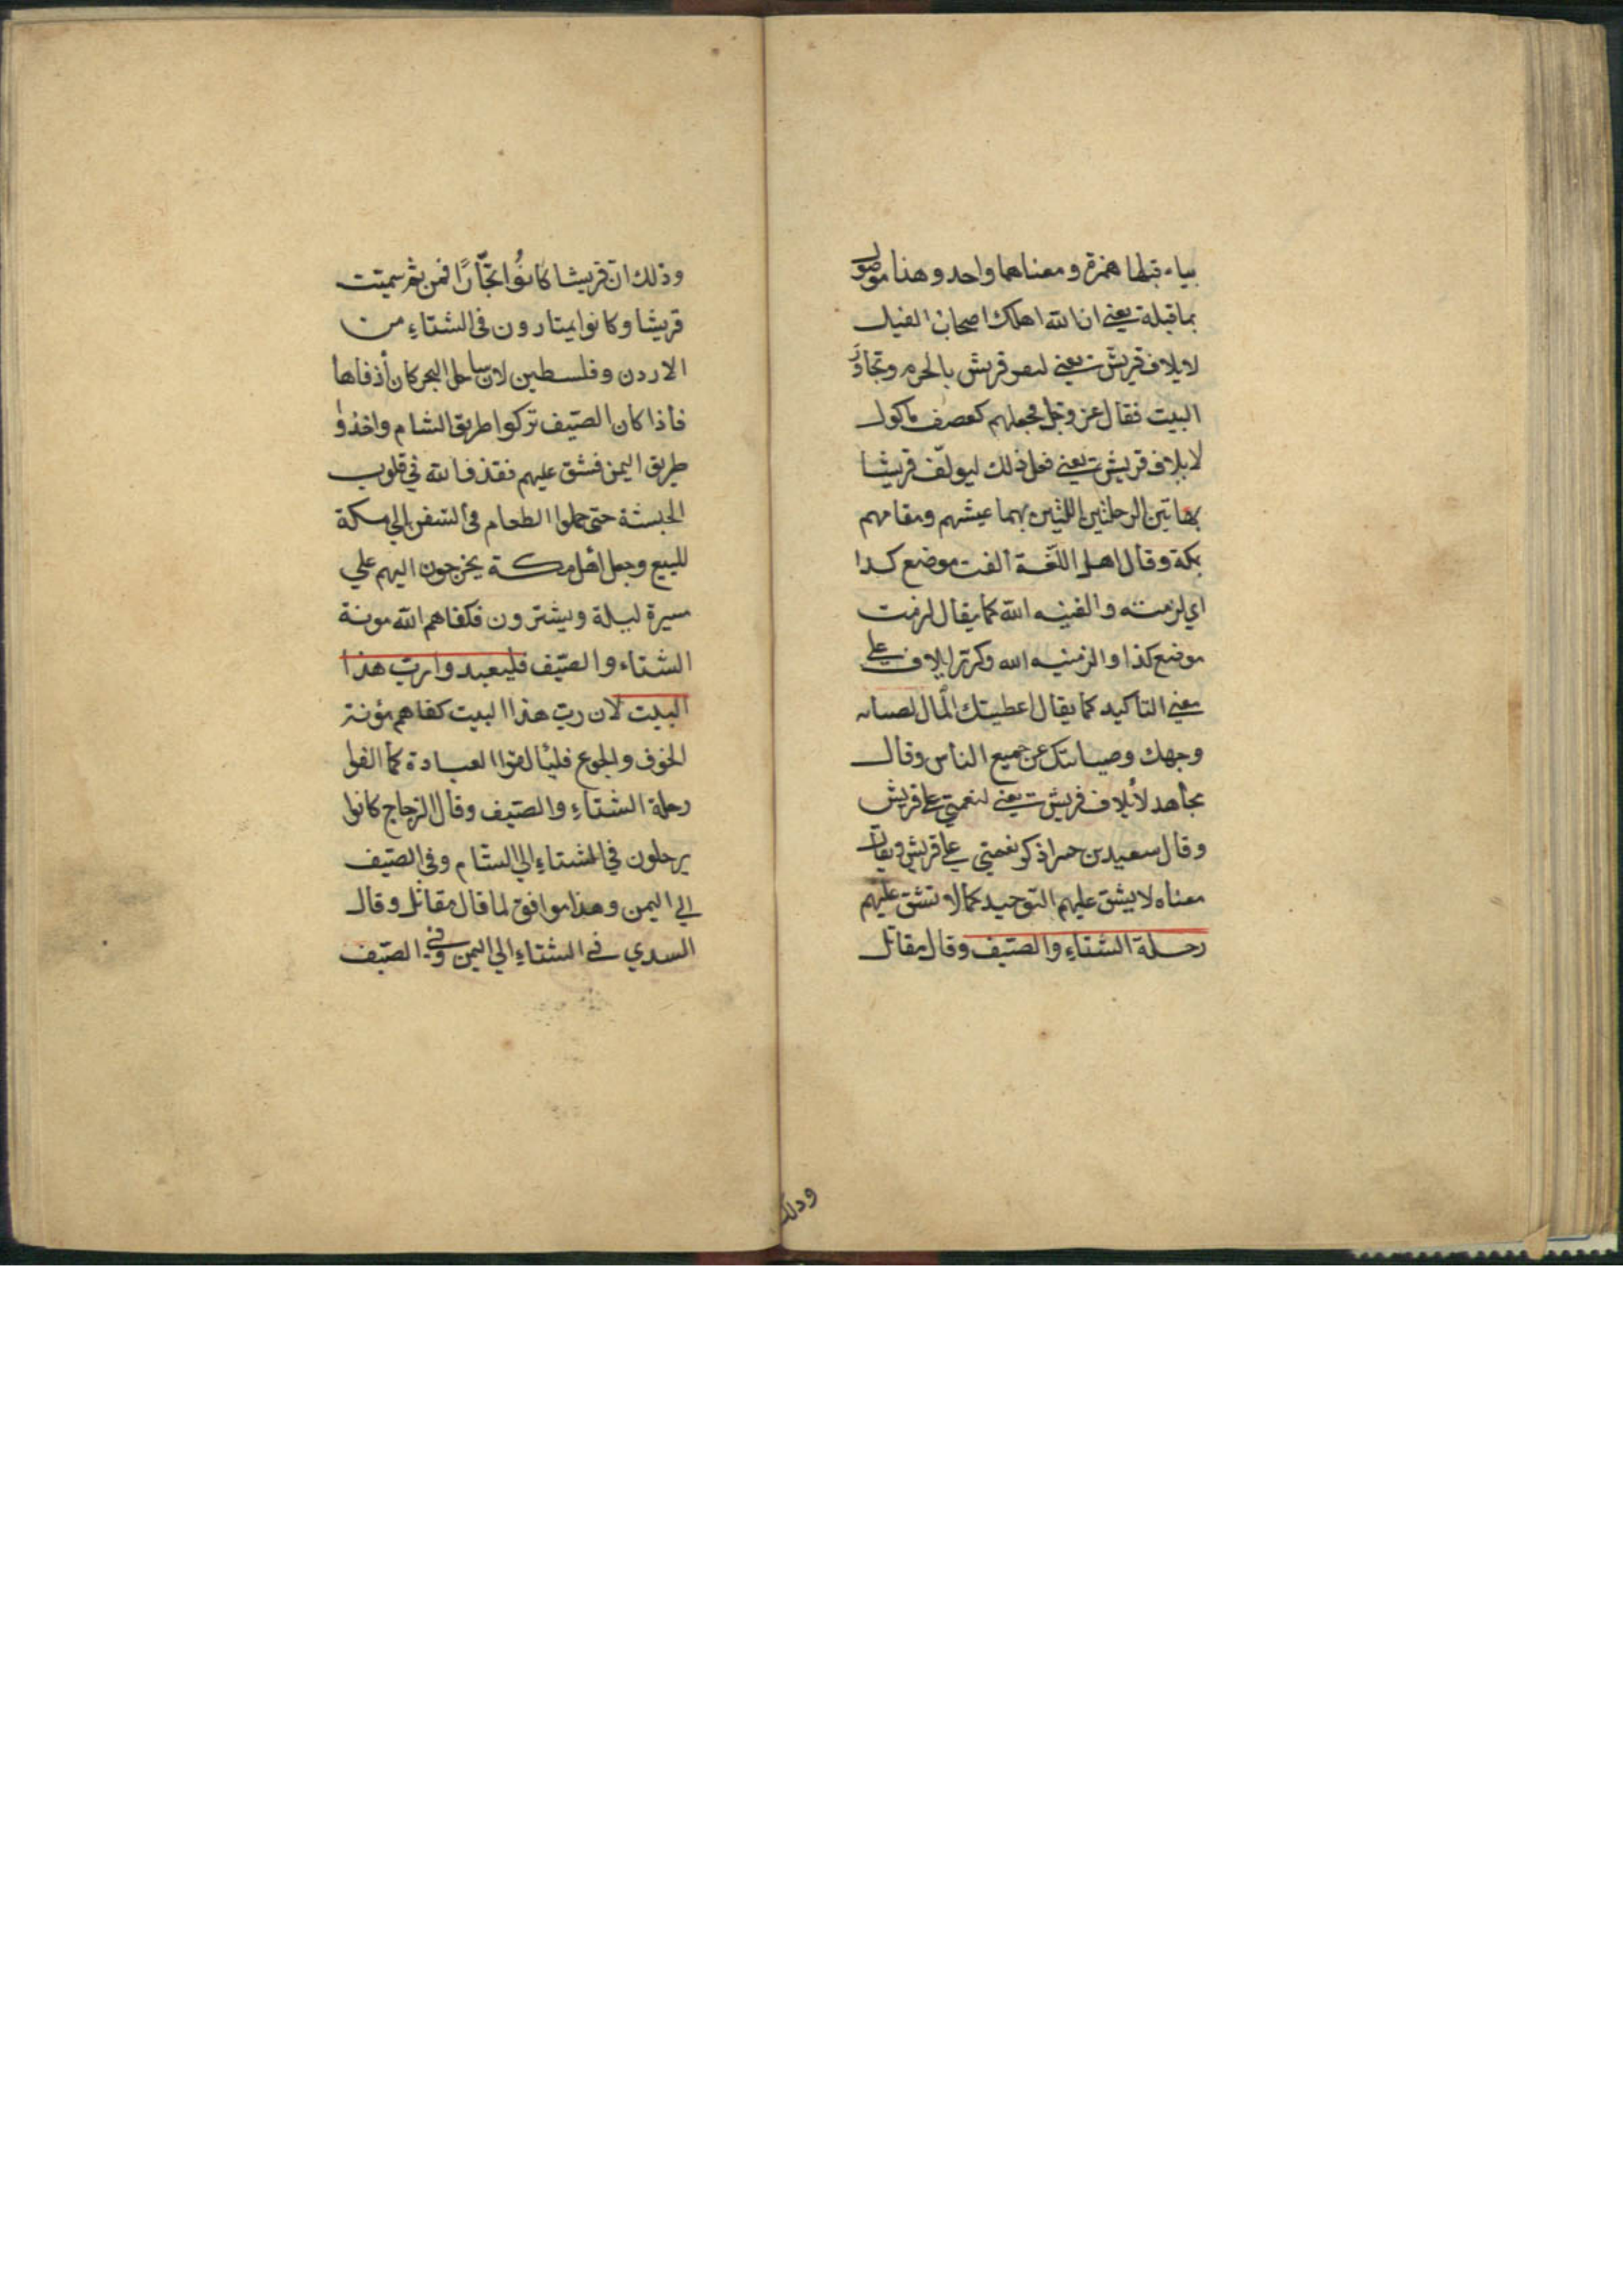 بياء قبلها همزة ومعناهما واحد وهذا موصول
بما قبله يعني ان الله اهلك اصحاب الفيل
لايلاف قريش يعني لتعر قريش بالحرم وتجاوز
البيت فقال عز وجل فجعلهم كعصف ماكول
لايلاف قريش يعني فعل ذلك ليولف قريشا
بهاتين الرحلتين اللتين بهما عيشهم ومقامهم
بمكة وقال اهل اللغة الفت موضع كذا
اي لزمته والفنيه الله كما يقال لزمت
موضع كذا والزمنيه الله وكرر لايلاف على
معني التاكيد كما يقال اعطيتك المال لصيانه
وجهك وصيانتك عن جميع الناس وقال
مجاهد لايلاف قريش يعني لنعمتي على قريش
وقال سعيد بن جبير اذكر نعمتي على قريش ويقال
معناه لا يشق عليهم التوحيد كما لا تشق عليهم
رحلة الشتاء والصيف وقال مقاتل
وذلك
وذلك ان قريشا كانوا تجارا فمن ثم سميت
قريشا وكانوا يمتارون في الشتاء من
الاردن وفلسطين لان ساحل البحر كان أدفاها
فاذا كان الصيف تركوا طريق الشام واخذوا
طريق اليمن فشق عليهم فقذف الله في قلوب
الحبشة حتى حملوا الطعام في السفن الي مكة
للبيع وجعل اهل مكة يخرجون اليهم علي
مسيرة ليلة ويشترون فكفاهم الله مونة
الشتاء والصيف فليعبدوا رب هذا
البيت لان رب هذا البيت كفاهم مؤنة
الخوف والجوع فليألفوا العبادة كما الفوا
رحلة الشتاء والصيف وقال الزجاج كانوا
يرحلون في الشتاء الي الشام وفي الصيف
الي اليمن وهذا موافق لما قال مقاتل وقال
السدي في الشتاء الي اليمن وفي الصيف